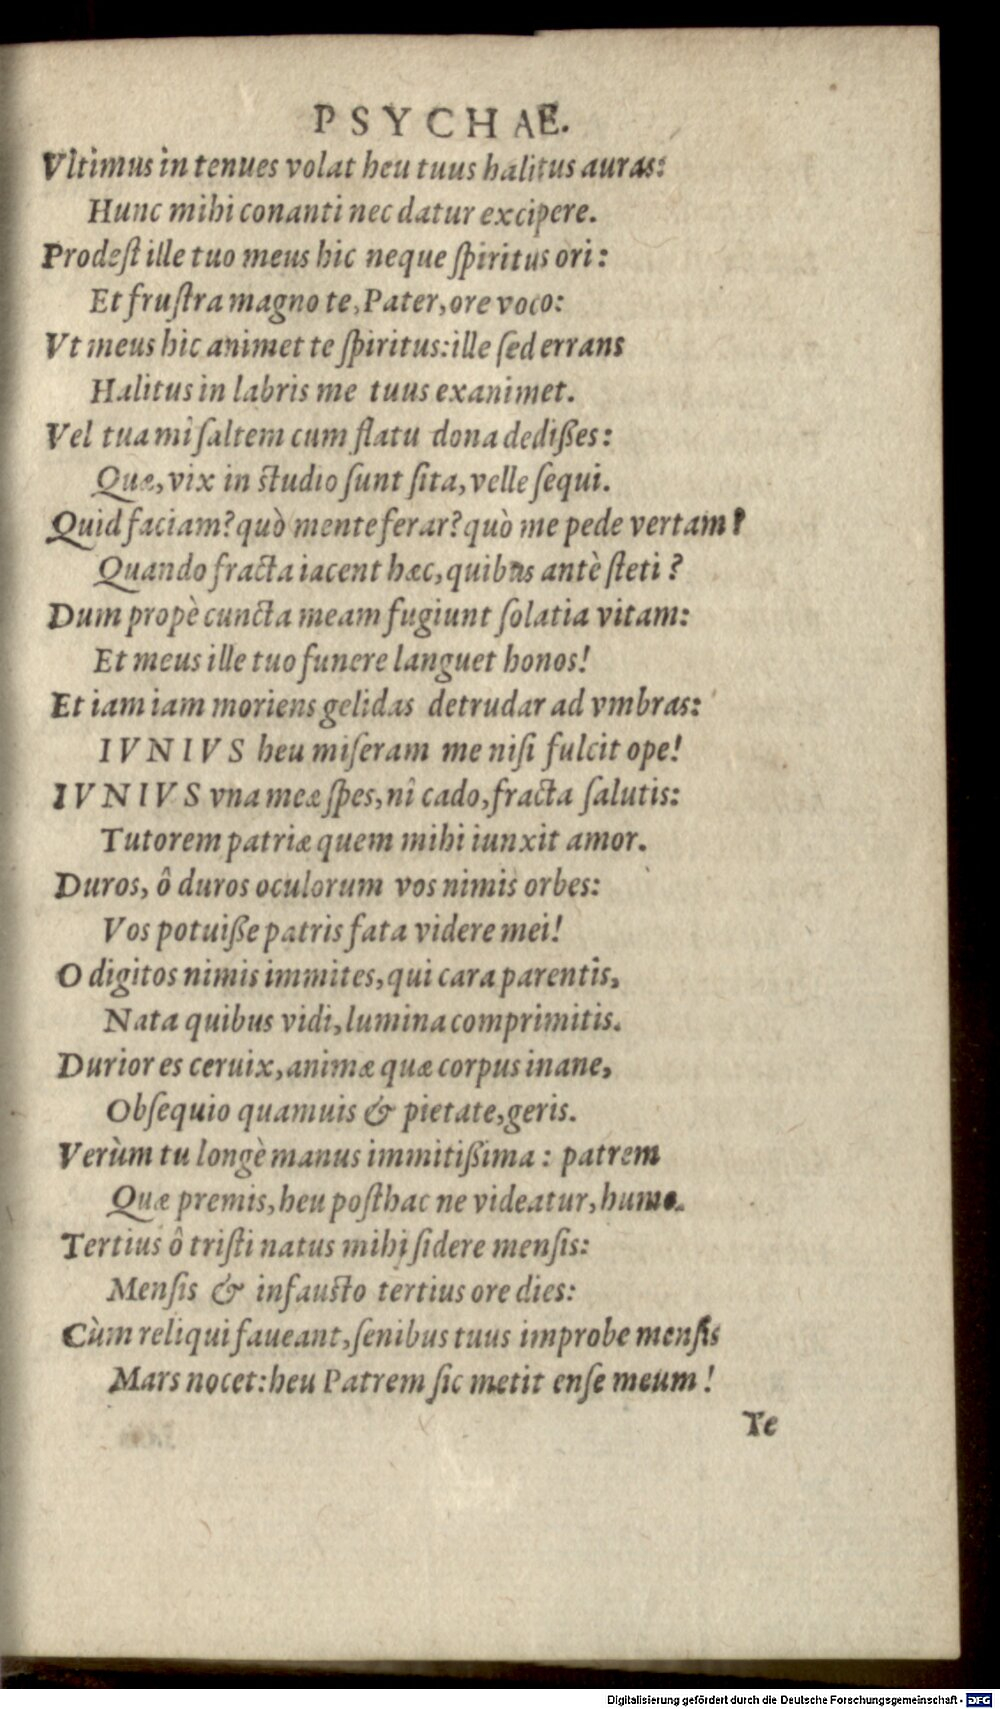 PSYCHAE.
Vltimus in tenues volat heu tuus halitus auras:
Hunc mihi conanti nec datur excipere.
Prodeſt ille tuo meus hic neque ſpiritus ori:
Et fruſtra magno te, Pater, ore voco:
Vt meus hic animet te ſpiritus: ille ſed errans
Halitus in labris me tuus exanimet.
Vel tua mî ſaltem cum flatu dona dedißes:
Quæ, vix in ſtudio ſunt ſita, velle ſequi.
Quid faciam? quò mente ferar? quò me pede vertam?
Quando fracta iacent hæc, quibus antè ſteti?
Dum propè cuncta meam fugiunt ſolatia vitam:
Et meus ille tuo funere languet honos!
Et iam iam moriens gelidas detrudar ad vmbras:
IVNIVS heu miſeram me niſi fulcit ope!
IVNIVS vna meæ ſpes, nî cado, fracta ſalutis:
Tutorem patriæ quem mihi iunxit amor.
Duros, ô duros oculorum vos nimis orbes:
Vos potuiße patris fata videre mei!
O digitos nimis immites, qui cara parentis,
Nata quibus vidi, lumina comprimitis.
Durior es ceruix, animæ quæ corpus inane,
Obſequio quamuis & pietate, geris.
Verùm tu longè manus immitißima: patrem
Quæ premis, heu poſthac ne videatur, humo.
Tertius ô triſti natus mihi ſidere menſis:
Menſis & infauſto tertius ore dies:
Cùm reliqui faueant, ſenibus tuus improbe menſis
Mars nocet: heu Patrem ſic metit enſe meum!
Te
Digitalisierung gefördert durch die Deutsche Forschungsgemeinschaft - DFG